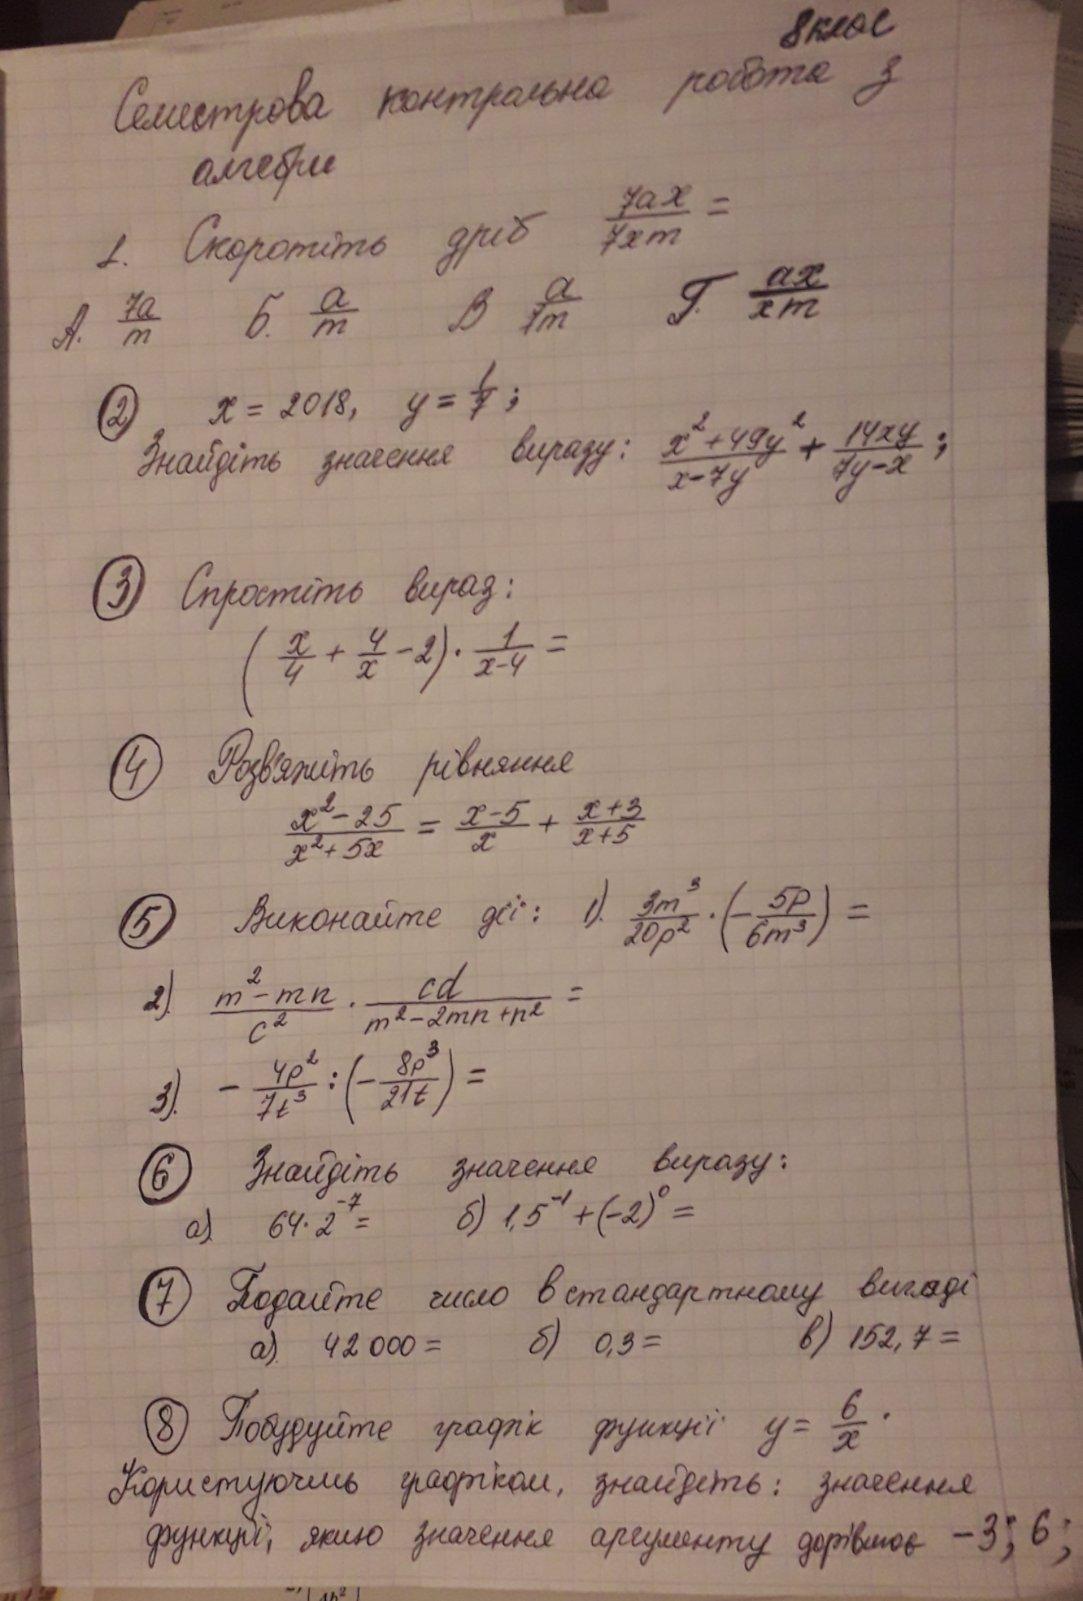 8 клас
Семестрова контрольна робота з
алгебри
1. Скоротіть дріб 7ax/7xm =
А. 7a/m Б. a/m В a/7m Г. ax/xm
2 x = 2018, y = 1/7;
Знайдіть значення виразу: (x²+49y²)/(x-7y) + 14xy/(7y-x);
3 Спростіть вираз:
(x/4 + 4/x - 2) · 1/(x-4) =
4 Розв'яжіть рівняння
(x²-25)/(x²+5x) = (x-5)/x + (x+3)/(x+5)
5 Виконайте дії: 1). 3m³/20p² · (-5p/6m³) =
2). (m²-mn)/c² · cd/(m²-2mn+n²) =
3). - 4p²/7t³ : (-8p³/21t) =
6 Знайдіть значення виразу:
а). 64·2⁻⁷= б) 1,5⁻¹+(-2)⁰ =
7 Подайте число в стандартному вигляді
а). 42 000 = б) 0,3 = в) 152,7 =
8 Побудуйте графік функції y = 6/x.
Користуючись графіком, знайдіть: значення
функції, якщо значення аргументу дорівнює -3; 6;